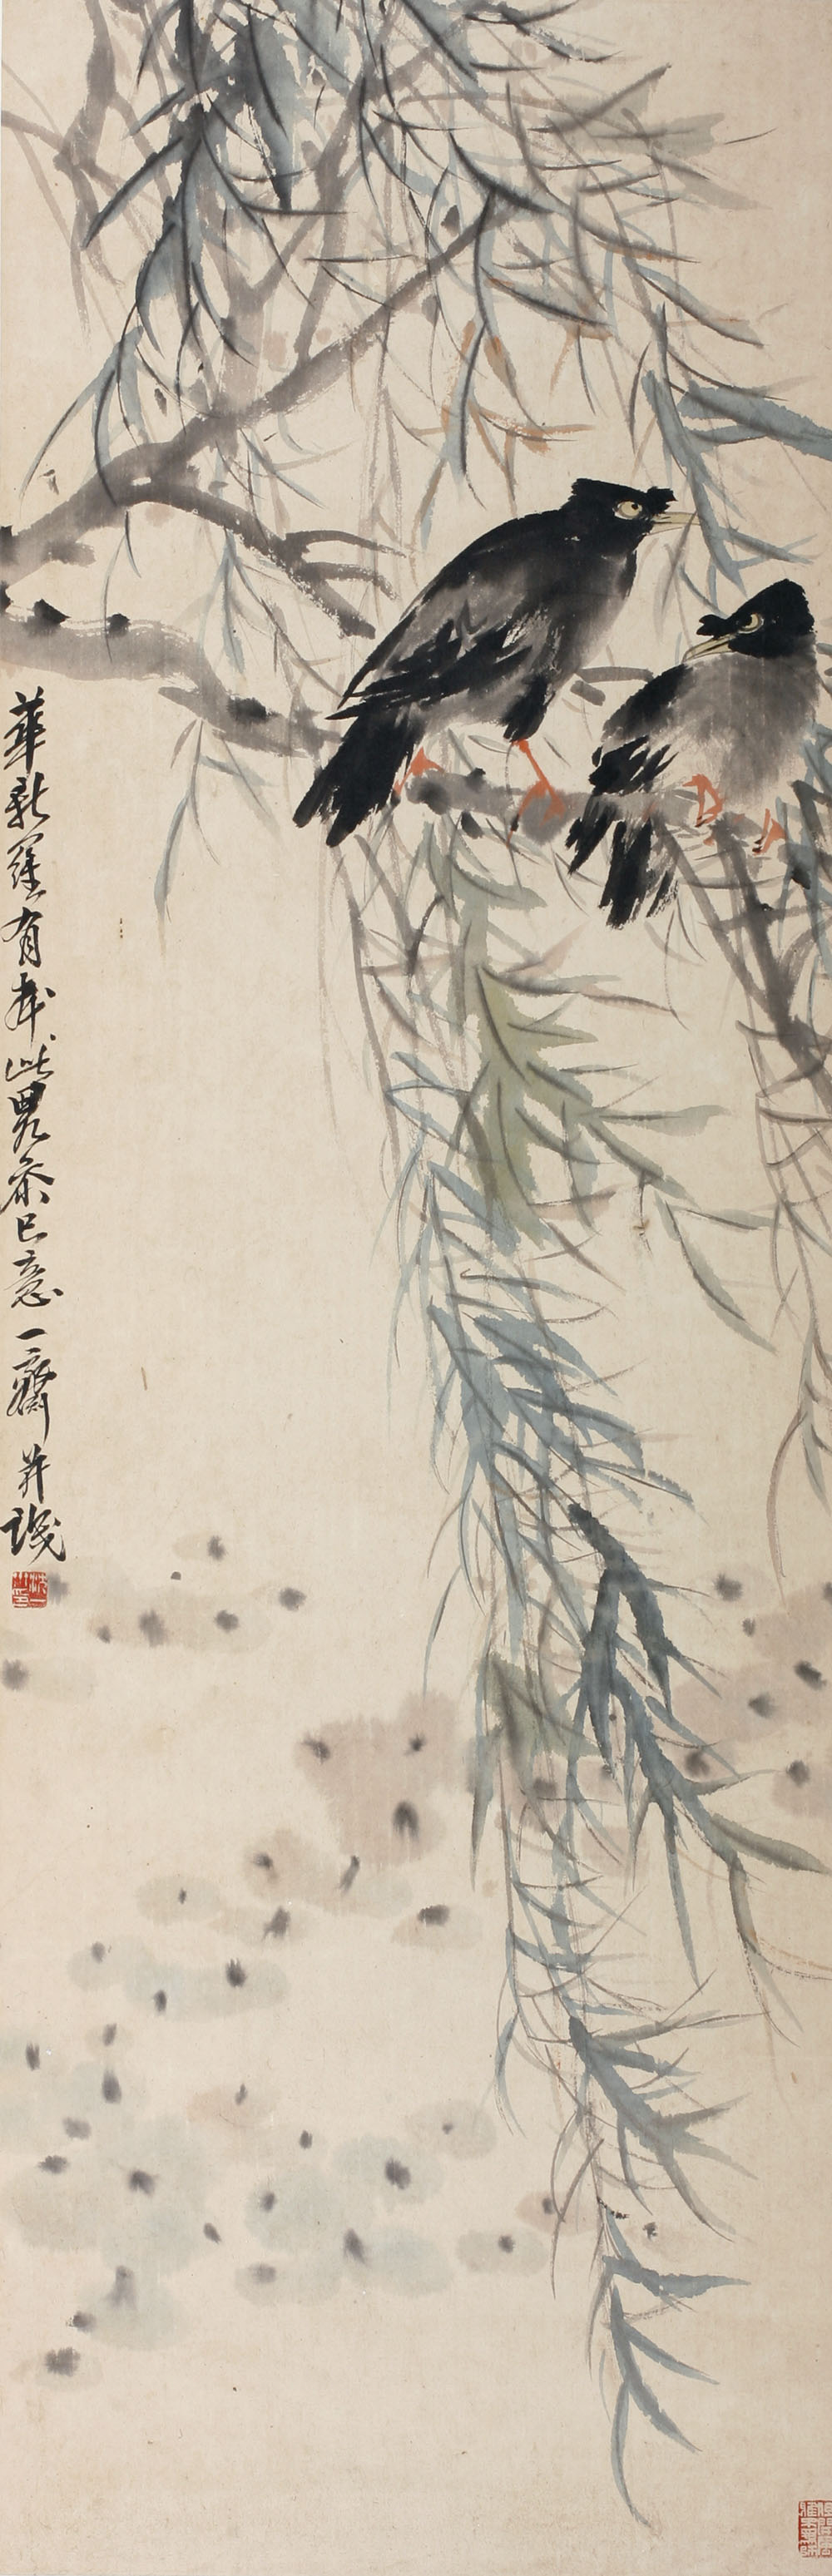 華新羅有本此略參己意一齋并識